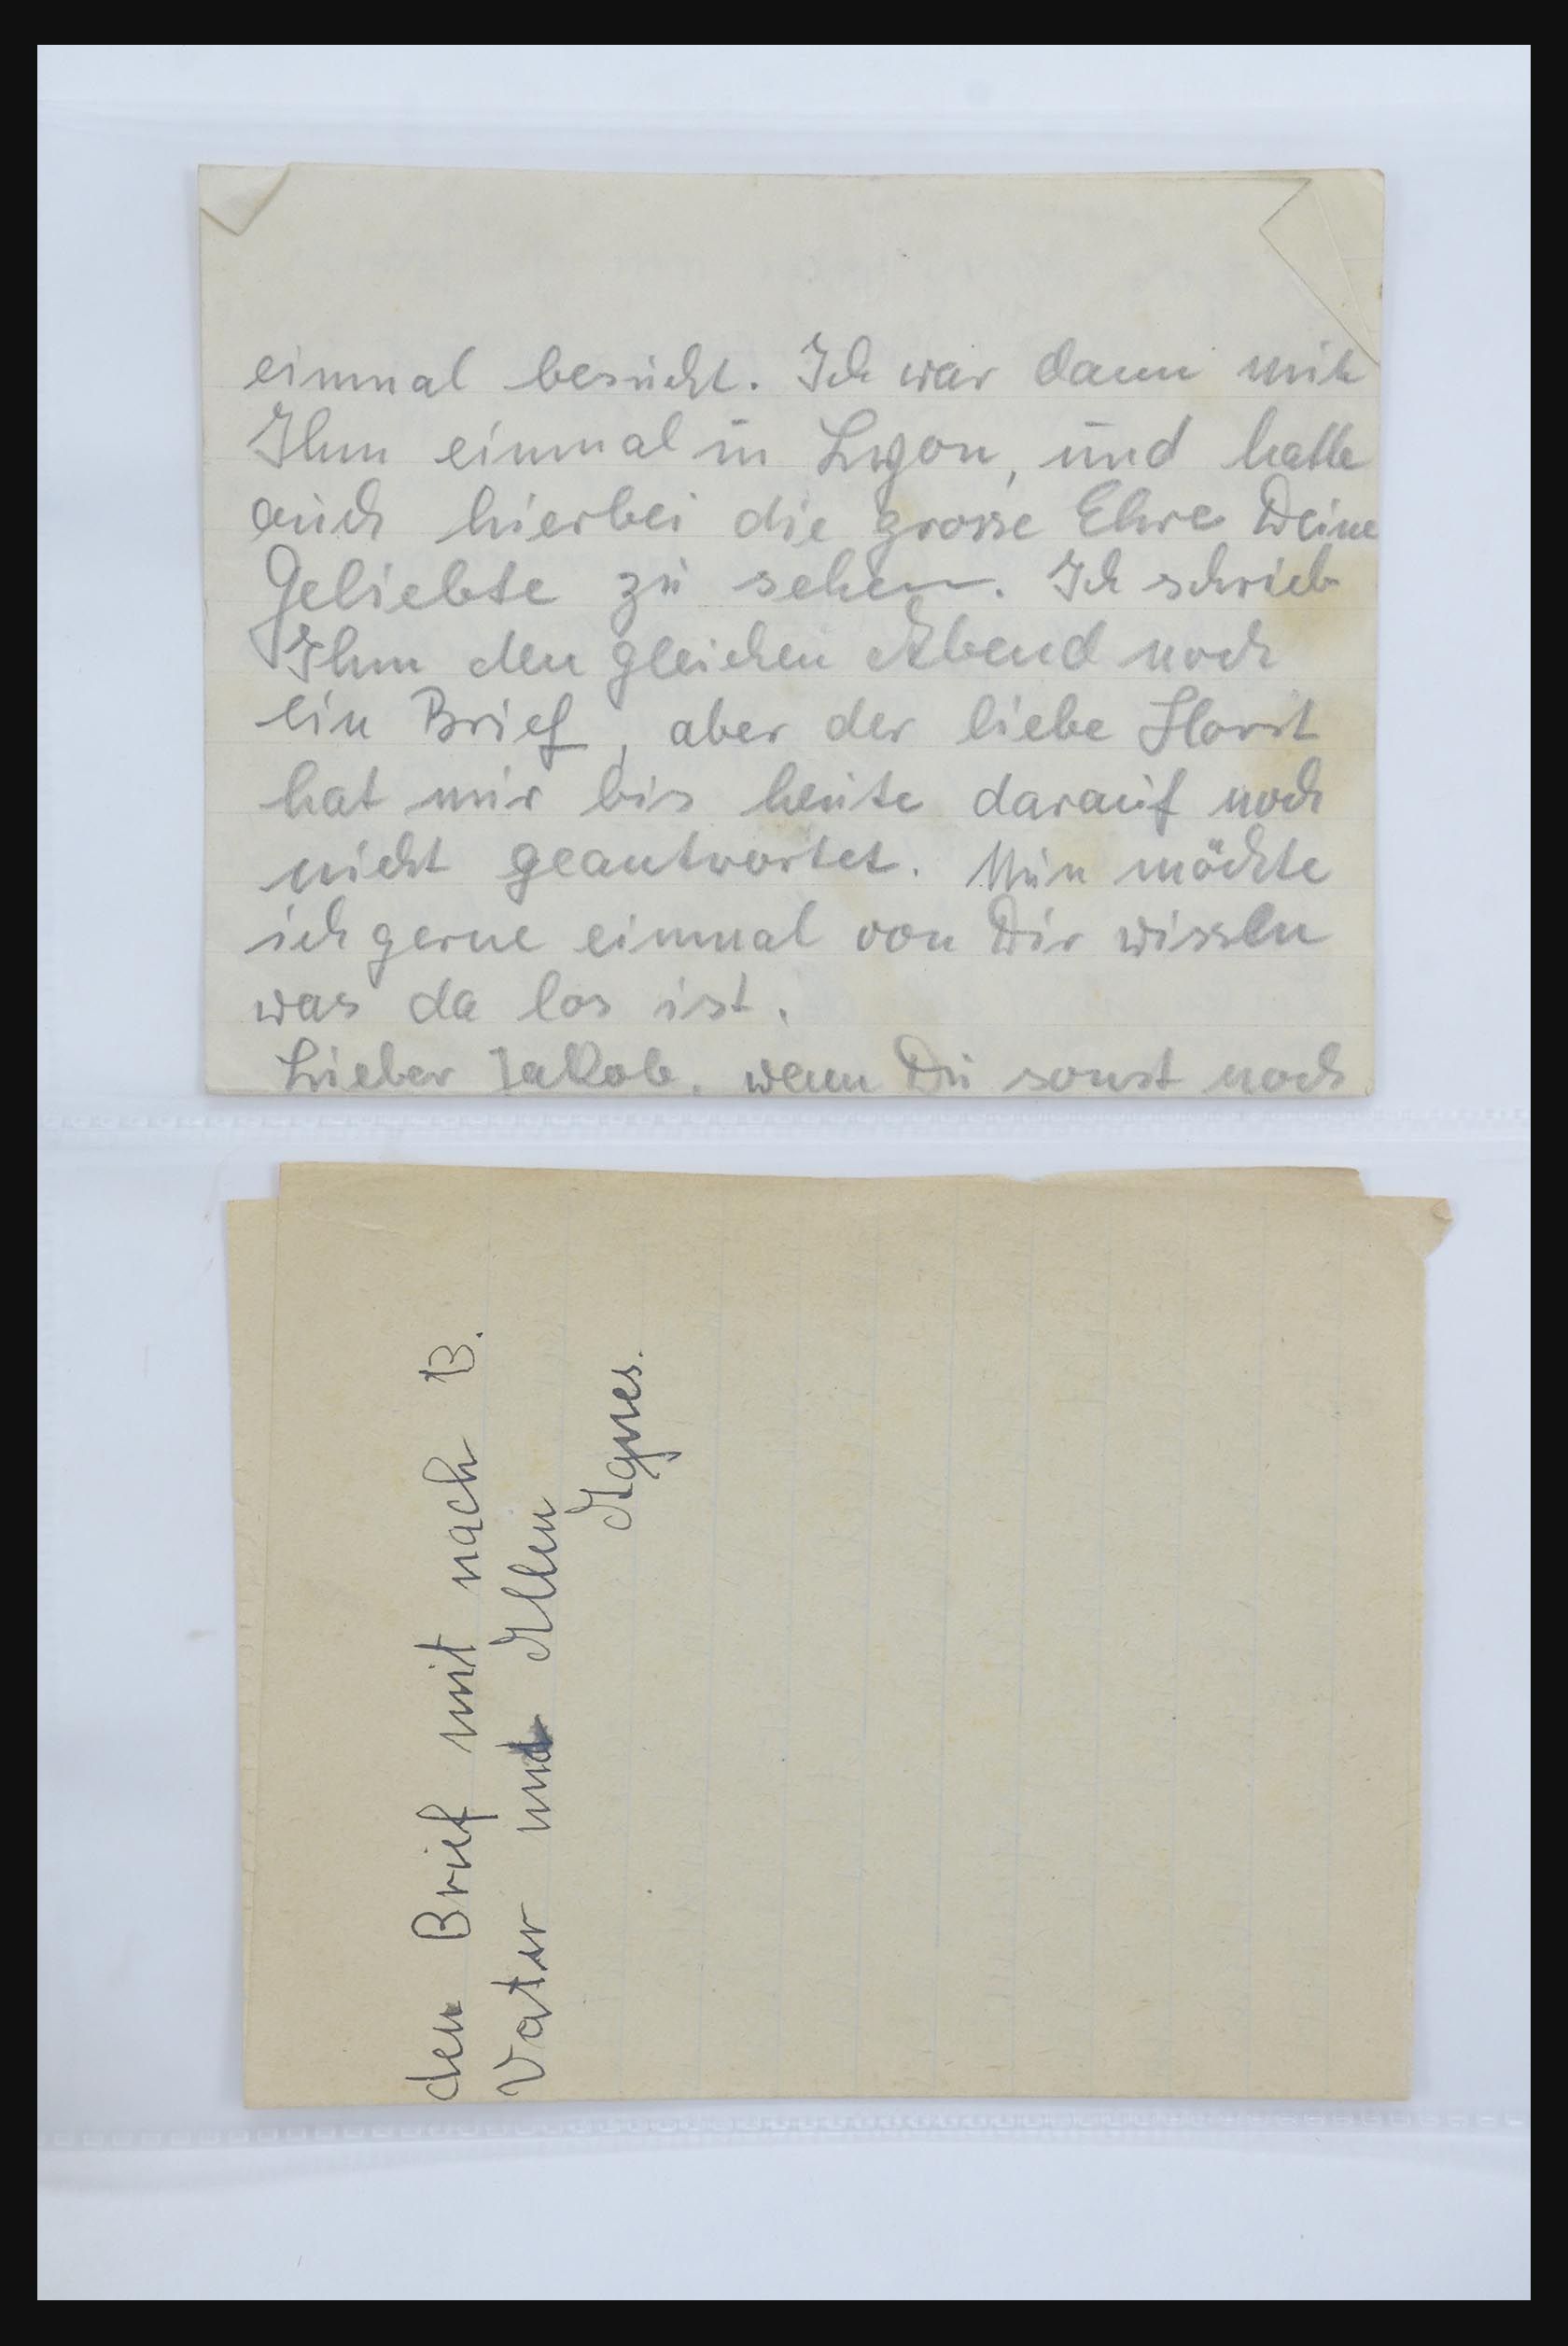 einmal besucht. Ich war dann mit
Ihm einmal in Lyon, und hatte
auch hierbei die grosse Ehre Deine
Geliebte zu sehen. Ich schrieb
Ihm den gleichen Abend noch
ein Brief, aber der liebe Horst
hat mir bis heute darauf noch
nicht geantwortet. Nun möchte
ich gerne einmal von Dir wissen
was da los ist.
Lieber Jakob, wenn Du sonst noch
den Brief mit nach B.
Vater und Allen
Agnes.